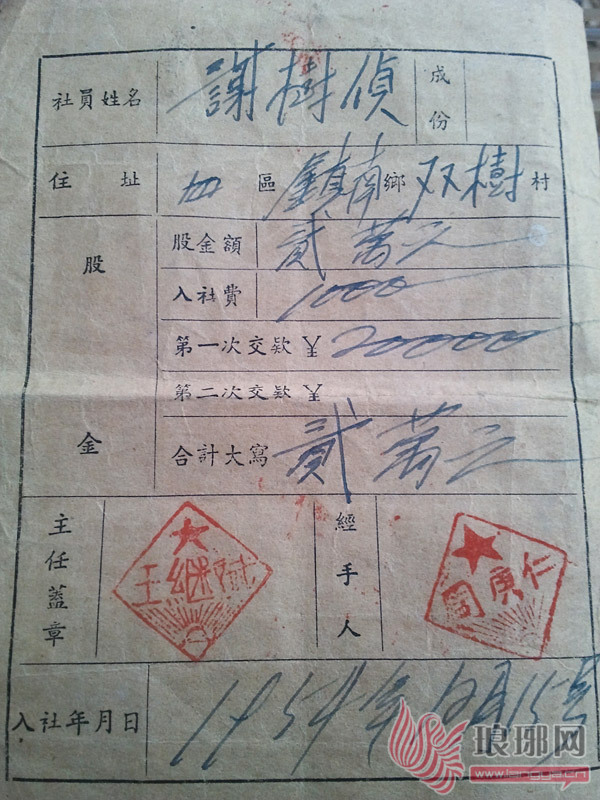 社員姓名 謝樹偵 成份
住址 四區 鎮南鄉 双樹村
股金
股金額 貳萬元
入社費 1000
第一次交款 ¥ 20000
第二次交款 ¥
合計大寫 貳萬元
主任蓋章 王繼斌
經手人 周庚仁
入社年月日 1954年12月15号
琅琊网
www.langya.cn